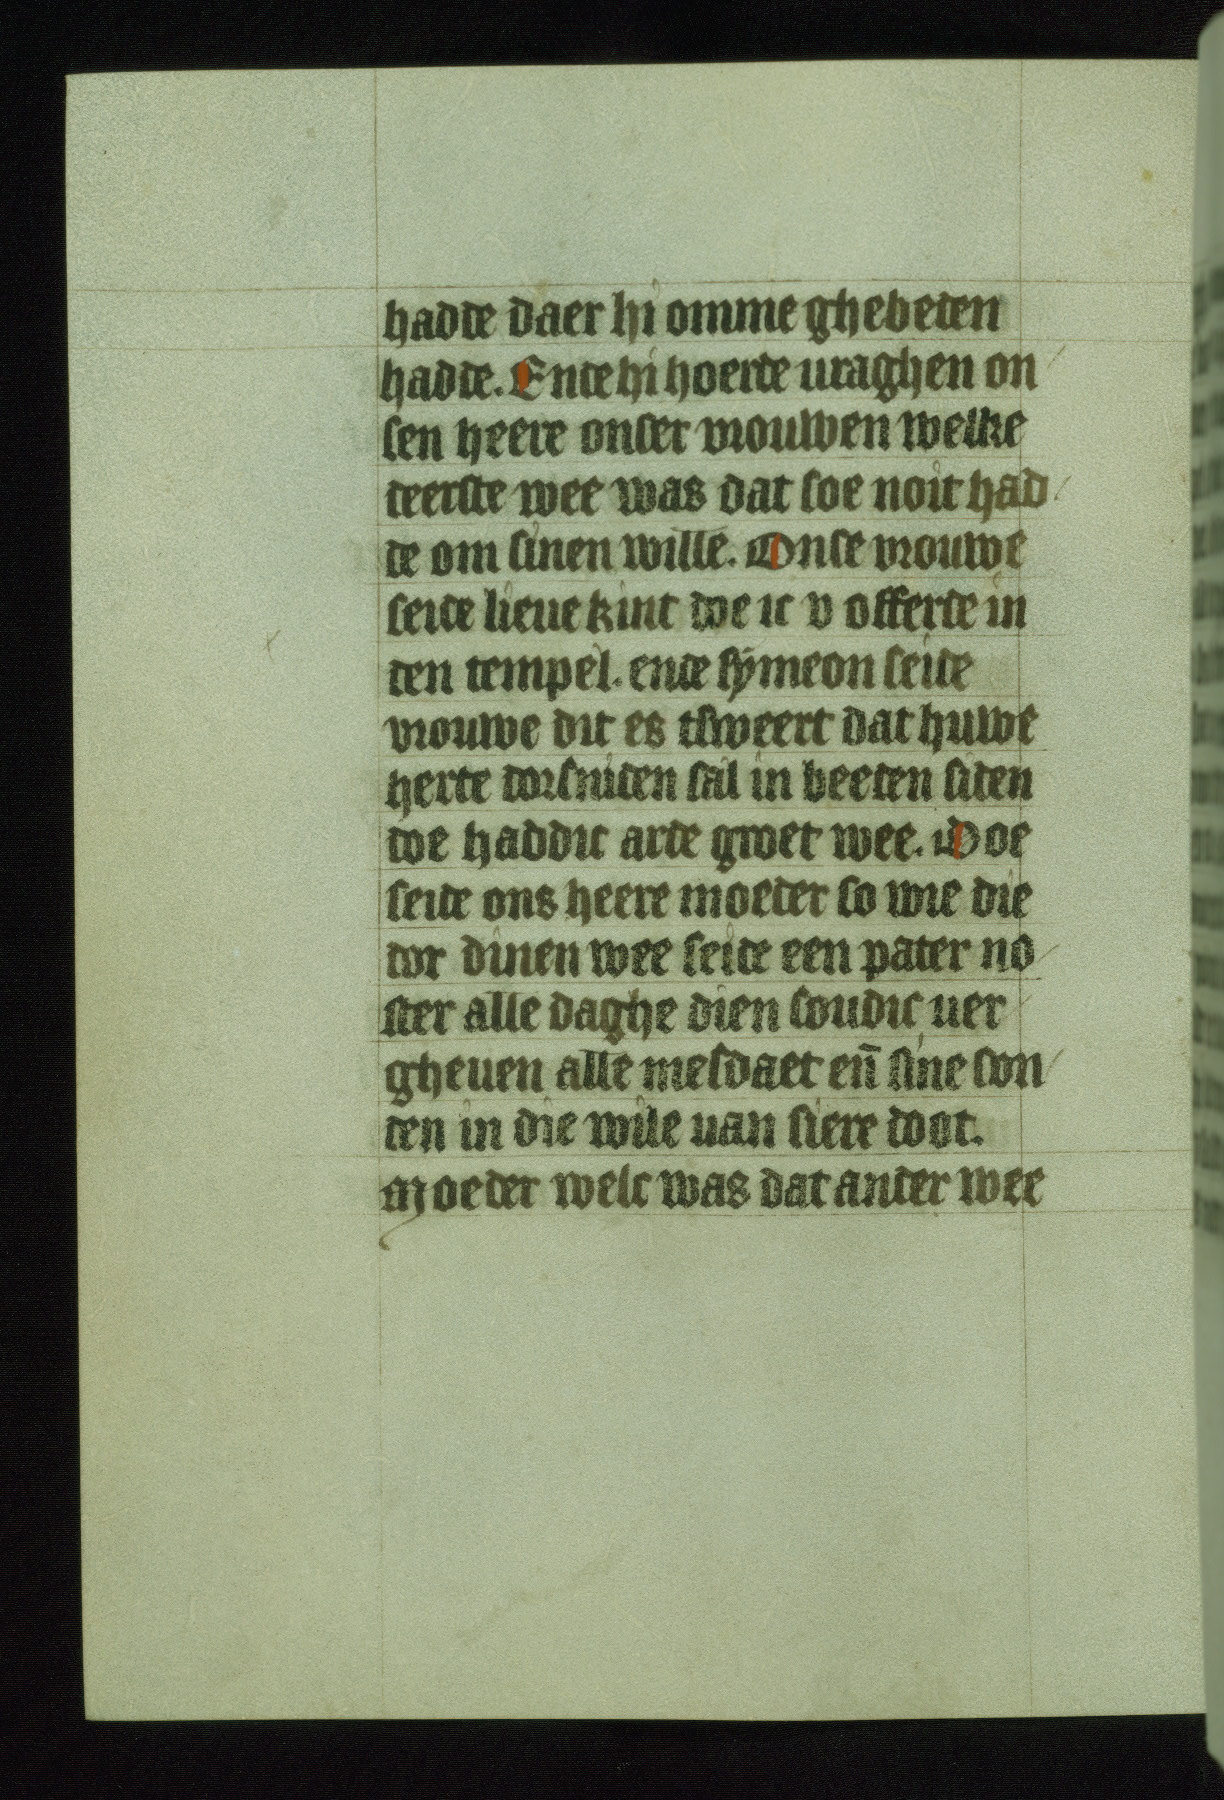 hadde daer hi omme ghebeden
hadde. Ende hi hoerde uraghen on
sen heere onser vrouwen welke
teerste wee was dat soe noit had
de om sinen wille. Onse vrouwe
seide lieue kint doe ic v offerde in
den tempel. ende symeon seide
vrouwe dit es tsweert dat huwe
herte dorsniden sal in beeden siden
doe haddic arde groet wee. Doe
seide ons heere moeder so wie die
dor dinen wee seide een pater no
ster alle daghe dien soudic uer
gheuen alle mesdaet eñ sine son
den in die wile uan siere doot.
Moeder welc was dat ander wee